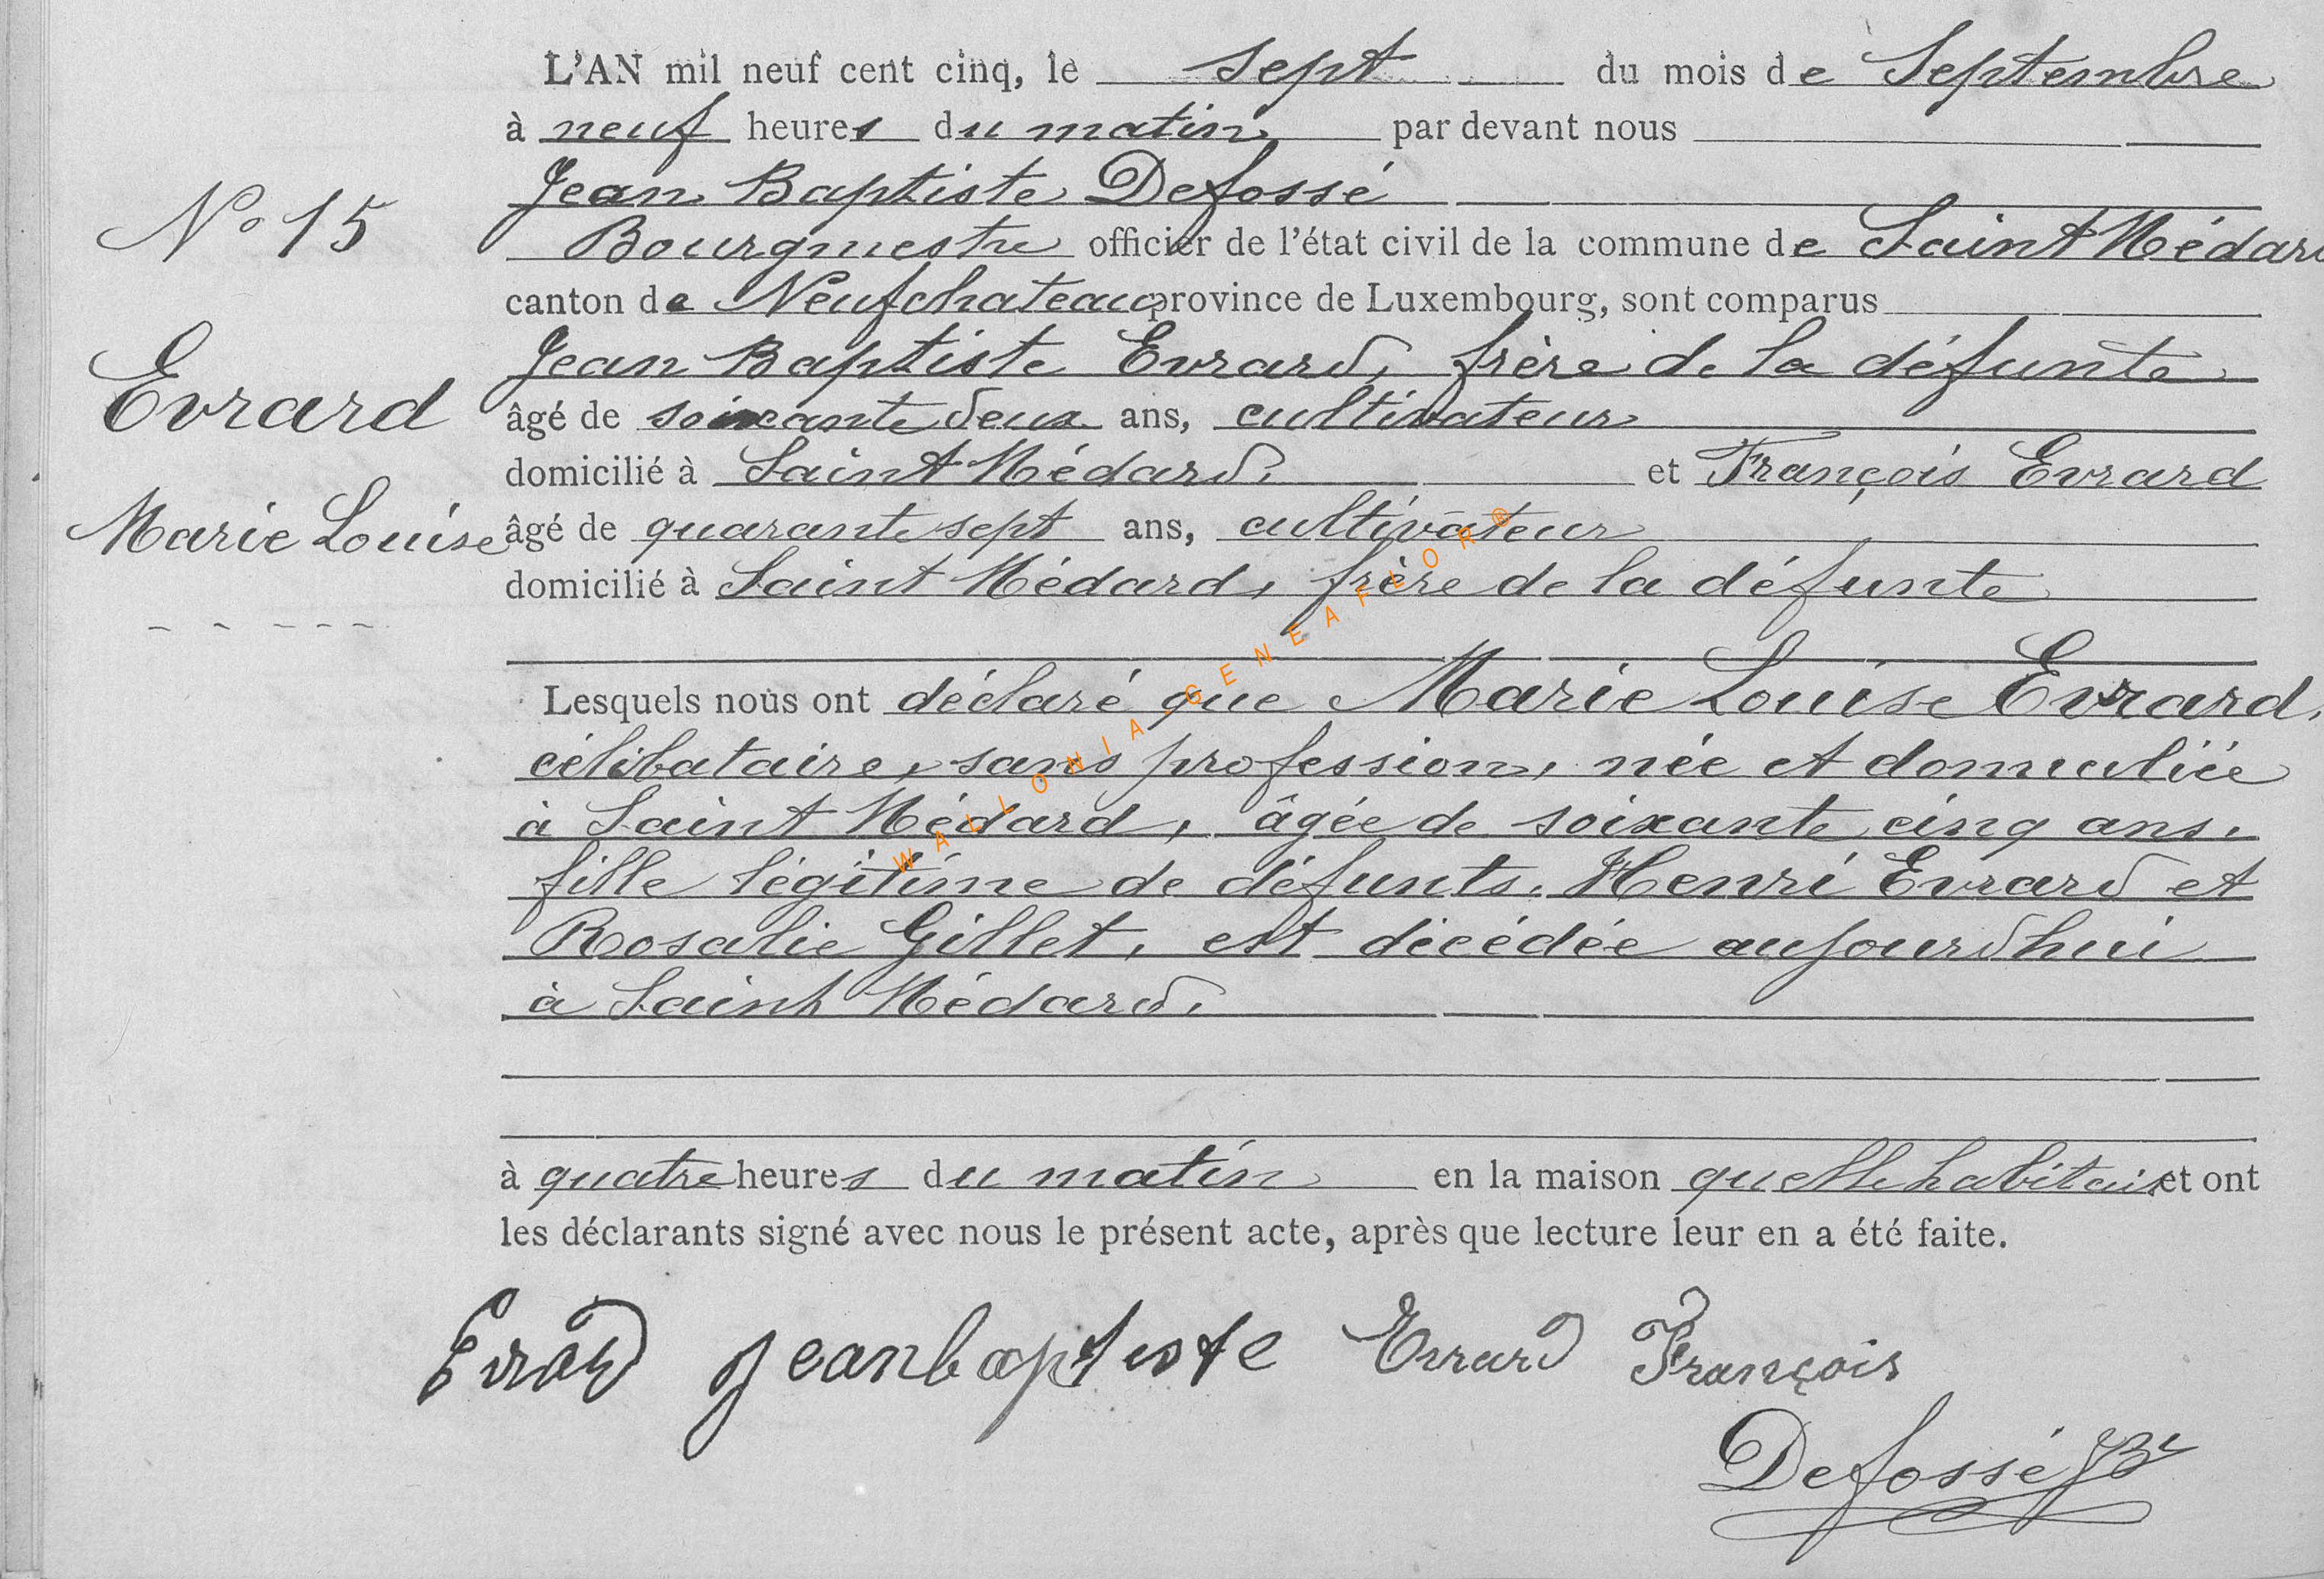 L'AN mil neuf cent cinq, le sept du mois de Septembre
à neuf heures du matin par devant nous
Jean Baptiste Defossé
Nº 15
Bourgmestre officier de l'état civil de la commune de Saint Médard
canton de Neufchateau province de Luxembourg, sont comparus
Jean Baptiste Evrard, frère de la défunte
Evrard
âgé de soixante deux ans, cultivateur
domicilié à Saint Médard, et François Evrard
Marie Louise
âgé de quarante sept ans, cultivateur
domicilié à Saint Médard, frère de la défunte
Lesquels nous ont déclaré que Marie Louise Evrard,
célibataire, sans profession, née et domiciliée
à Saint Médard, âgée de soixante cinq ans,
fille légitime de défunts, Henri Evrard et
Rosalie Gillet, est décédée aujourdhui
à Saint Médard,
à quatre heures du matin en la maison quelle habitait et ont
les déclarants signé avec nous le présent acte, après que lecture leur en a été faite.
Evrard jeanbaptiste Evrard François
Defossé JBte
WALLONIA-GENEAFLOR®